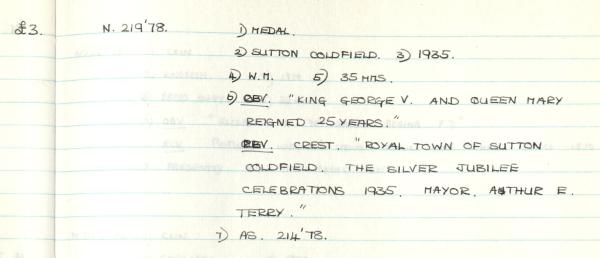 £3. N. 219'78. 1) MEDAL.
2) SUTTON COLDFIELD. 3) 1935.
4) W.M. 5) 35 MMS.
6) OBV. "KING GEORGE V. AND QUEEN MARY
REIGNED 25 YEARS."
REV. CREST. "ROYAL TOWN OF SUTTON
COLDFIELD. THE SILVER JUBILEE
CELEBRATIONS 1935. MAYOR. ARTHUR E.
TERRY."
7) AS. 214'78.